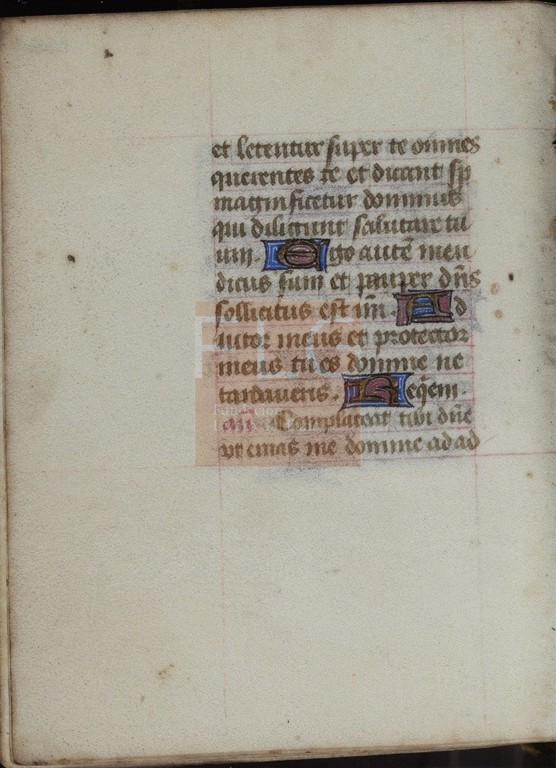 et letentur super te omnes
querentes te et dicant sp̄
magnificetur dominus
qui diligunt salutare tu
um. Ego autē men
dicus sum et pauper dn̄s
sollicitus est mī. Ad
iutor meus et protector
meus tu es domine ne
tardaveris. Reqiem.
añ. Complaceat tibi dn̄e
ut eruas me domine ad ad
FLG